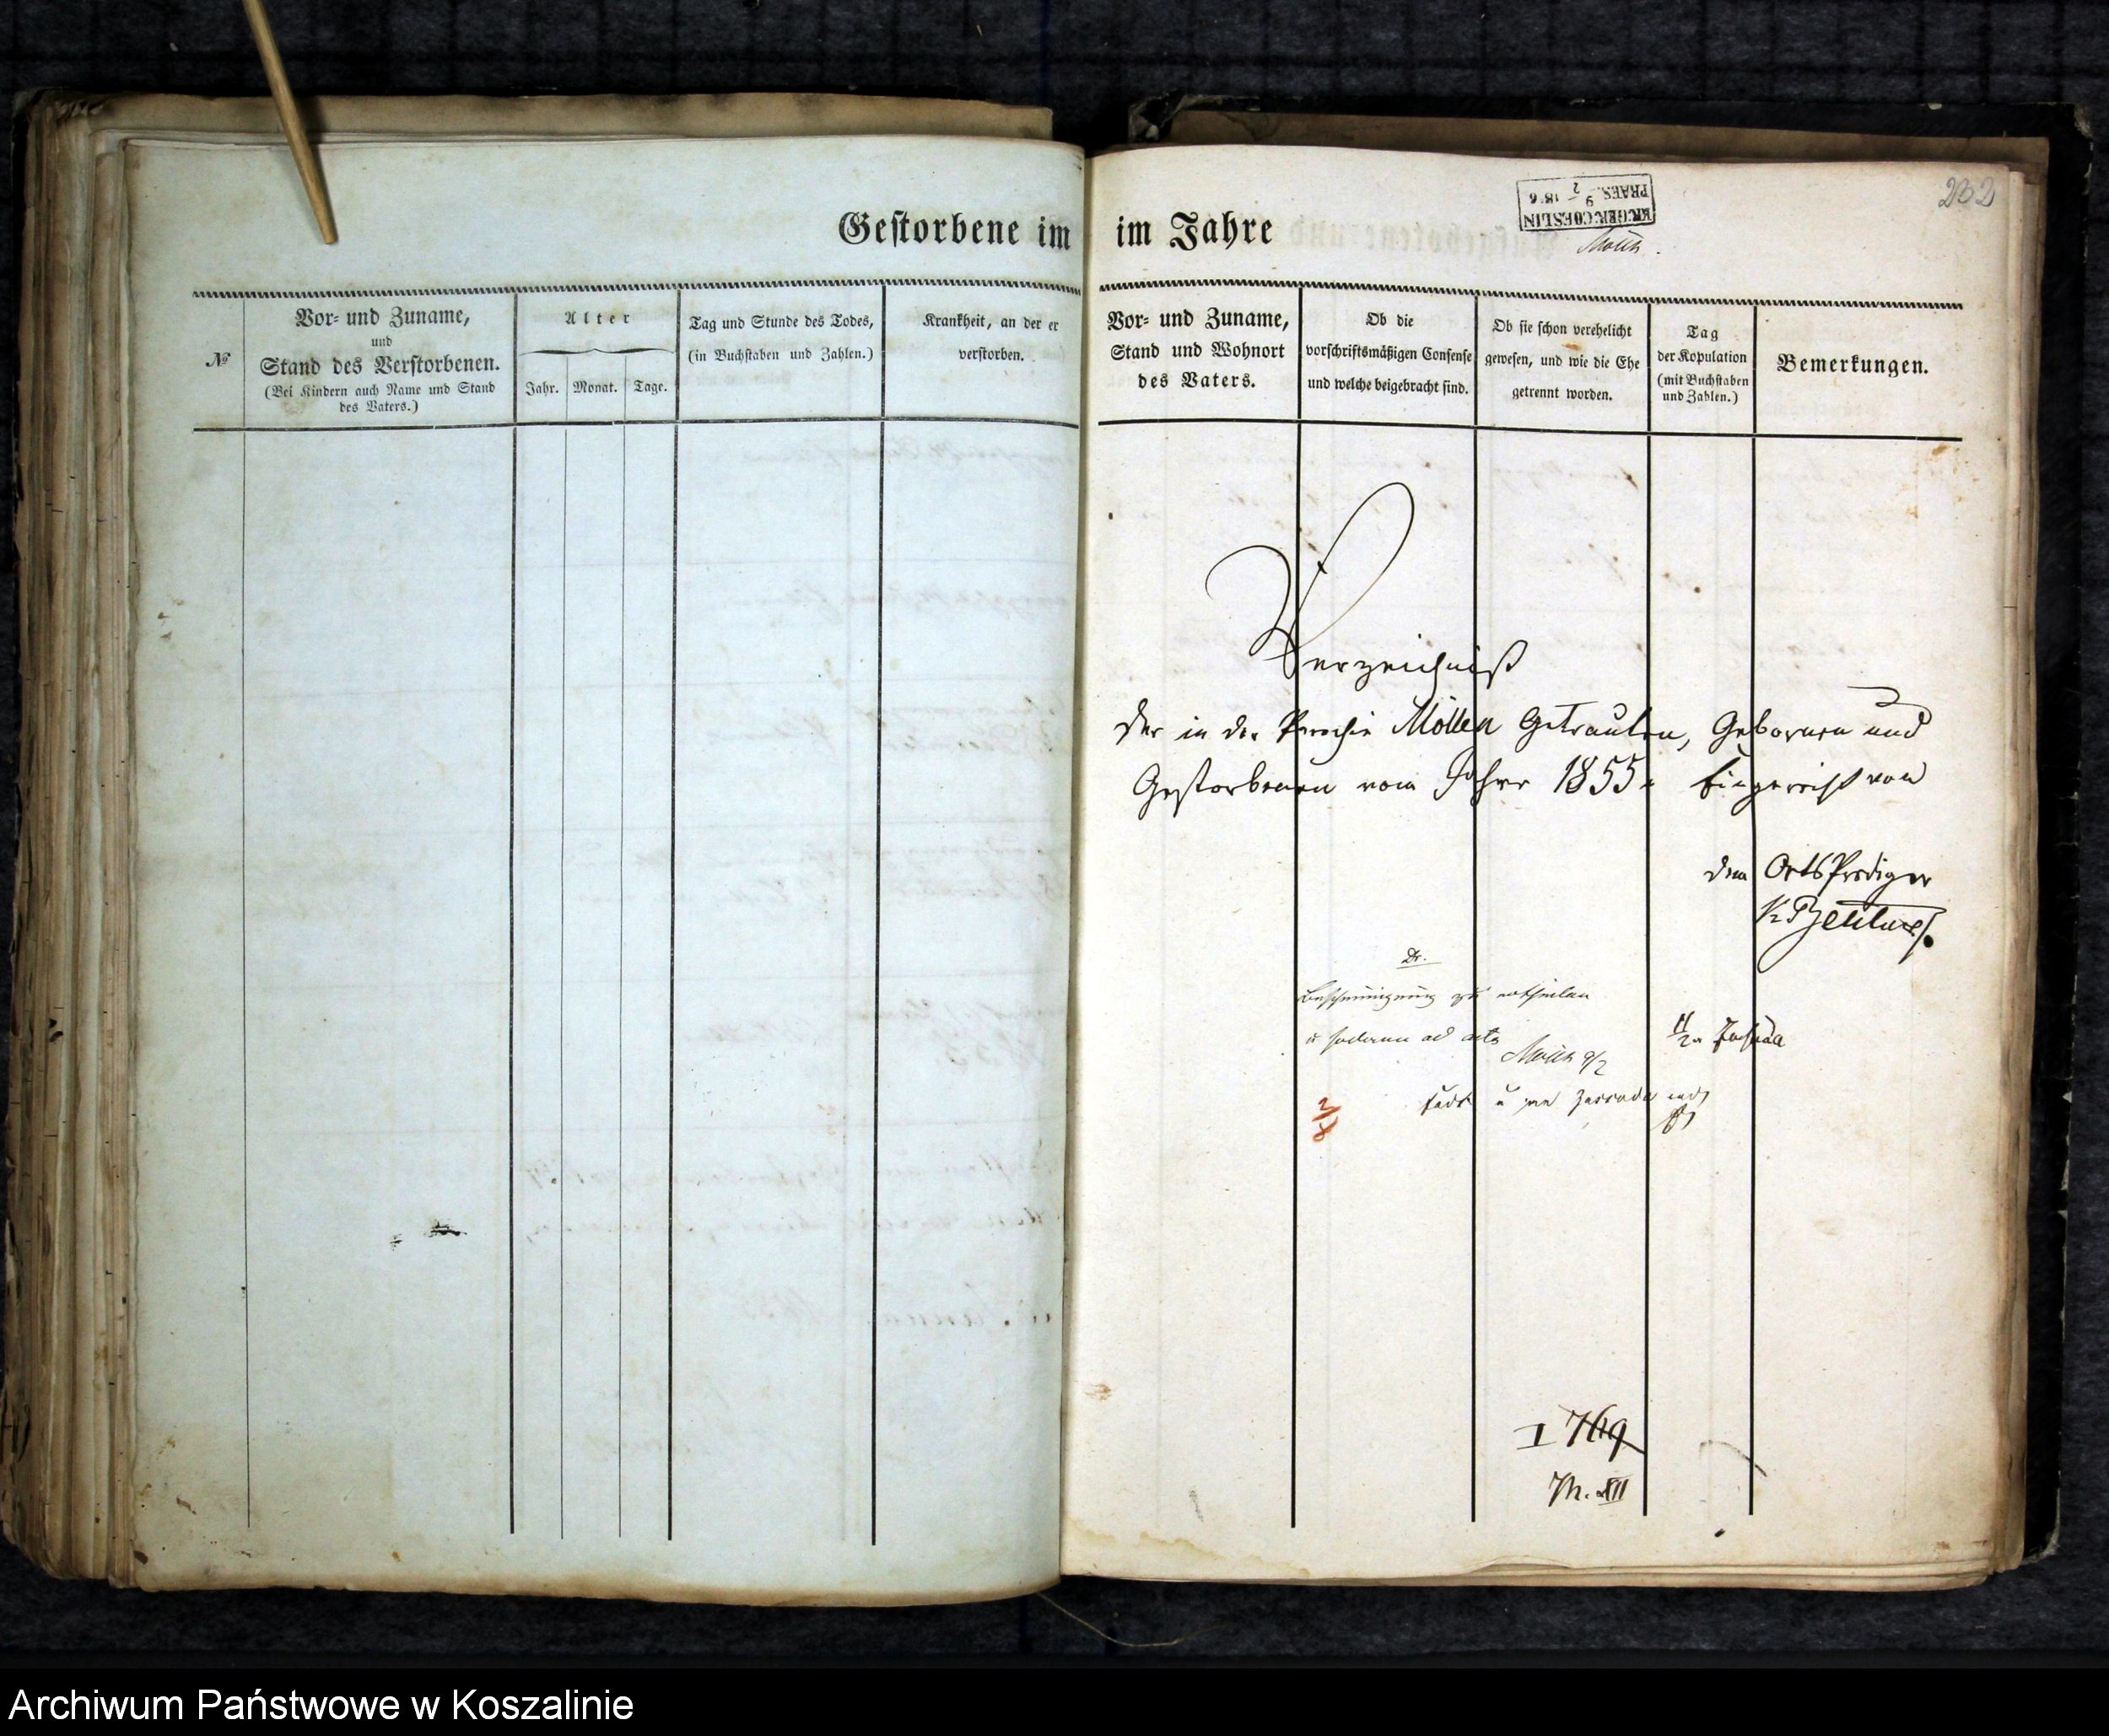 Gestorbene im
№
Vor- und Zuname,
und
Stand des Verstorbenen.
(Bei Kindern auch Name und Stand
des Vaters.)
Alter
Jahr. Monat. Tage.
Tag und Stunde des Todes,
(in Buchstaben und Zahlen.)
Krankheit, an der er
verstorben.
im Jahre
KR.GER.COESLIN
PRAES.
232
Vor- und Zuname,
Stand und Wohnort
des Vaters.
Ob die
vorschriftsmäßigen Consense
und welche beigebracht sind.
Ob sie schon verehelicht
gewesen, und wie die Ehe
getrennt worden.
Tag
der Kopulation
(mit Buchstaben
und Zahlen.)
Bemerkungen.
Verzeichniß
der in der Parochie Möllen Getrauten, Gebornen und
Gestorbenen vom Jahre 1855. Eingereicht von
dem OrtsPrediger
Bescheinigung zu ertheilen
u sodann ad acta
I 769
M. XII
Archiwum Państwowe w Koszalinie